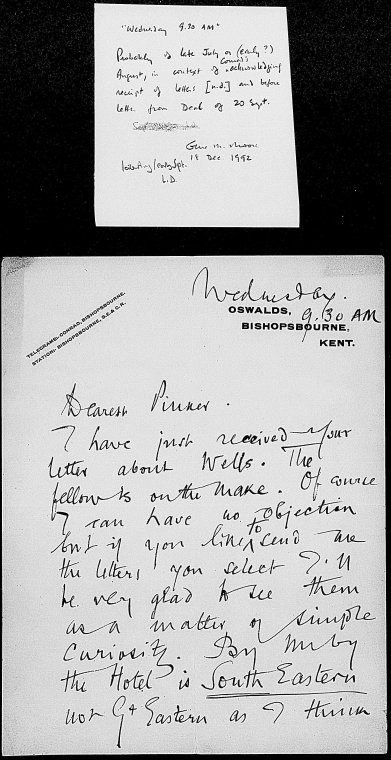 "Wednesday 9.30 AM"
Probably of late July or (early?)
August, in context of Conrad's acknowledging
receipt of letters [n.d.] and before
letter from Deal of 20 Sept.
Gene M. Moore
18 Dec. 1992
late Aug/early Spt.
L.D.
Wednesday.
9.30 AM
TELEGRAMS: CONRAD, BISHOPSBOURNE.
STATION: BISHOPSBOURNE, S.E. & C.R.
OSWALDS,
BISHOPSBOURNE,
KENT.
Dearest Pinker.
I have just received your
letter about Wells. The
fellow is on the make. Of course
I can have no objection
but if you like to send me
the letters you select I'll
be very glad to see them
as a matter of simple
curiosity. By
the Hotel is South Eastern
not Gt Eastern as I think